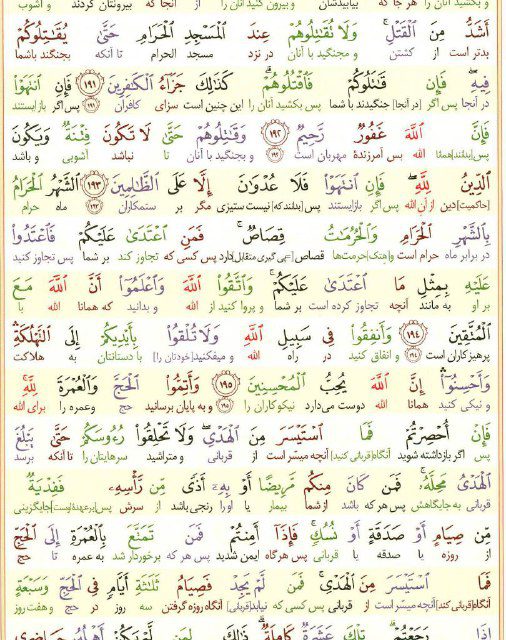 و بکشید آنان را هر جا که بیابیدشان و بیرون کنید آنان را از آنجا که بیرونتان کردند و آشوب
أَشَدُّ مِنَ ٱلْقَتْلِ ۚ وَلَا تُقَٰتِلُوهُمْ عِندَ ٱلْمَسْجِدِ ٱلْحَرَامِ حَتَّىٰ يُقَٰتِلُوكُمْ
بدتر است از کشتن و مجنگید با آنان در نزد مسجد الحرام تا آنکه بجنگند باشما
فِيهِ ۖ فَإِن قَٰتَلُوكُمْ فَٱقْتُلُوهُمْ ۗ كَذَٰلِكَ جَزَآءُ ٱلْكَٰفِرِينَ ۝١٩١ فَإِنِ ٱنتَهَوْا۟
در آنجا پس اگر [در آنجا] جنگیدند با شما پس بکشید آنان را این چنین است سزای کافران ۱۹۱ پس اگر باز ایستند
فَإِنَّ ٱللَّهَ غَفُورٌ رَّحِيمٌ ۝١٩٢ وَقَٰتِلُوهُمْ حَتَّىٰ لَا تَكُونَ فِتْنَةٌ وَيَكُونَ
پس [بدانند] همانا الله بس آمرزنده مهربان است ۱۹۲ و بجنگید با آنان تا نباشد آشوبی و باشد
ٱلدِّينُ لِلَّهِ ۖ فَإِنِ ٱنتَهَوْا۟ فَلَا عُدْوَٰنَ إِلَّا عَلَى ٱلظَّٰلِمِينَ ۝١٩٣ ٱلشَّهْرُ ٱلْحَرَامُ
[حاکمیت] دین از آن الله پس اگر بازایستند پس [بدانند که] نیست ستیزی مگر بر ستمکاران ۱۹۳ ماه حرام
بِٱلشَّهْرِ ٱلْحَرَامِ وَٱلْحُرُمَٰتُ قِصَاصٌ ۚ فَمَنِ ٱعْتَدَىٰ عَلَيْكُمْ فَٱعْتَدُوا۟
در برابر ماه حرام است و [هتک] حرمت‌ها قصاص دارد پس کسی که تجاوز کند بر شما پس تجاوز کنید
عَلَيْهِ بِمِثْلِ مَا ٱعْتَدَىٰ عَلَيْكُمْ ۚ وَٱتَّقُوا۟ ٱللَّهَ وَٱعْلَمُوٓا۟ أَنَّ ٱللَّهَ مَعَ
بر او به مانند آنچه تجاوز کرده است بر شما و پروا کنید از الله و بدانید که همانا الله با
ٱلْمُتَّقِينَ ۝١٩٤ وَأَنفِقُوا۟ فِى سَبِيلِ ٱللَّهِ وَلَا تُلْقُوا۟ بِأَيْدِيكُمْ إِلَى ٱلتَّهْلُكَةِ ۛ
پرهیزکاران است ۱۹۴ و انفاق کنید در راه الله و میفکنید [خودتان را] با دستانتان به هلاکت
وَأَحْسِنُوٓا۟ ۛ إِنَّ ٱللَّهَ يُحِبُّ ٱلْمُحْسِنِينَ ۝١٩٥ وَأَتِمُّوا۟ ٱلْحَجَّ وَٱلْعُمْرَةَ لِلَّهِ ۚ
و نیکی کنید همانا الله دوست می‌دارد نیکوکاران را ۱۹۵ و به پایان برسانید حج وعمره را برای الله
فَإِنْ أُحْصِرْتُمْ فَمَا ٱسْتَيْسَرَ مِنَ ٱلْهَدْىِ ۖ وَلَا تَحْلِقُوا۟ رُءُوسَكُمْ حَتَّىٰ يَبْلُغَ
پس اگر بازداشته شوید آنگاه [قربانی کنید] آنچه میسّر است از قربانی و متراشید سرهایتان را تا آنکه برسد
ٱلْهَدْىُ مَحِلَّهُۥ ۚ فَمَن كَانَ مِنكُم مَّرِيضًا أَوْ بِهِۦٓ أَذًى مِّن رَّأْسِهِۦ فَفِدْيَةٌ
قربانی به جایگاهش پس هر که باشد از شما بیمار یا او را رنجی باشد از سرش پس جایگزینی
مِّن صِيَامٍ أَوْ صَدَقَةٍ أَوْ نُسُكٍ ۚ فَإِذَآ أَمِنتُمْ فَمَن تَمَتَّعَ بِٱلْعُمْرَةِ إِلَى ٱلْحَجِّ
از روزه یا صدقه یا قربانی پس هرگاه ایمن شدید پس هر که برخوردار شد به عمره تا حج
فَمَا ٱسْتَيْسَرَ مِنَ ٱلْهَدْىِ ۚ فَمَن لَّمْ يَجِدْ فَصِيَامُ ثَلَٰثَةِ أَيَّامٍ فِى ٱلْحَجِّ وَسَبْعَةٍ
آنگاه [قربانی کند] آنچه میسّر است از قربانی پس کسی که نیابد [قربانی] آنگاه روزه گرفتن سه روز در حج و هفت روز
إِذَا رَجَعْتُمْ ۗ تِلْكَ عَشَرَةٌ كَامِلَةٌ ۗ ذَٰلِكَ لِمَن لَّمْ يَكُنْ أَهْلُهُۥ حَاضِرِى